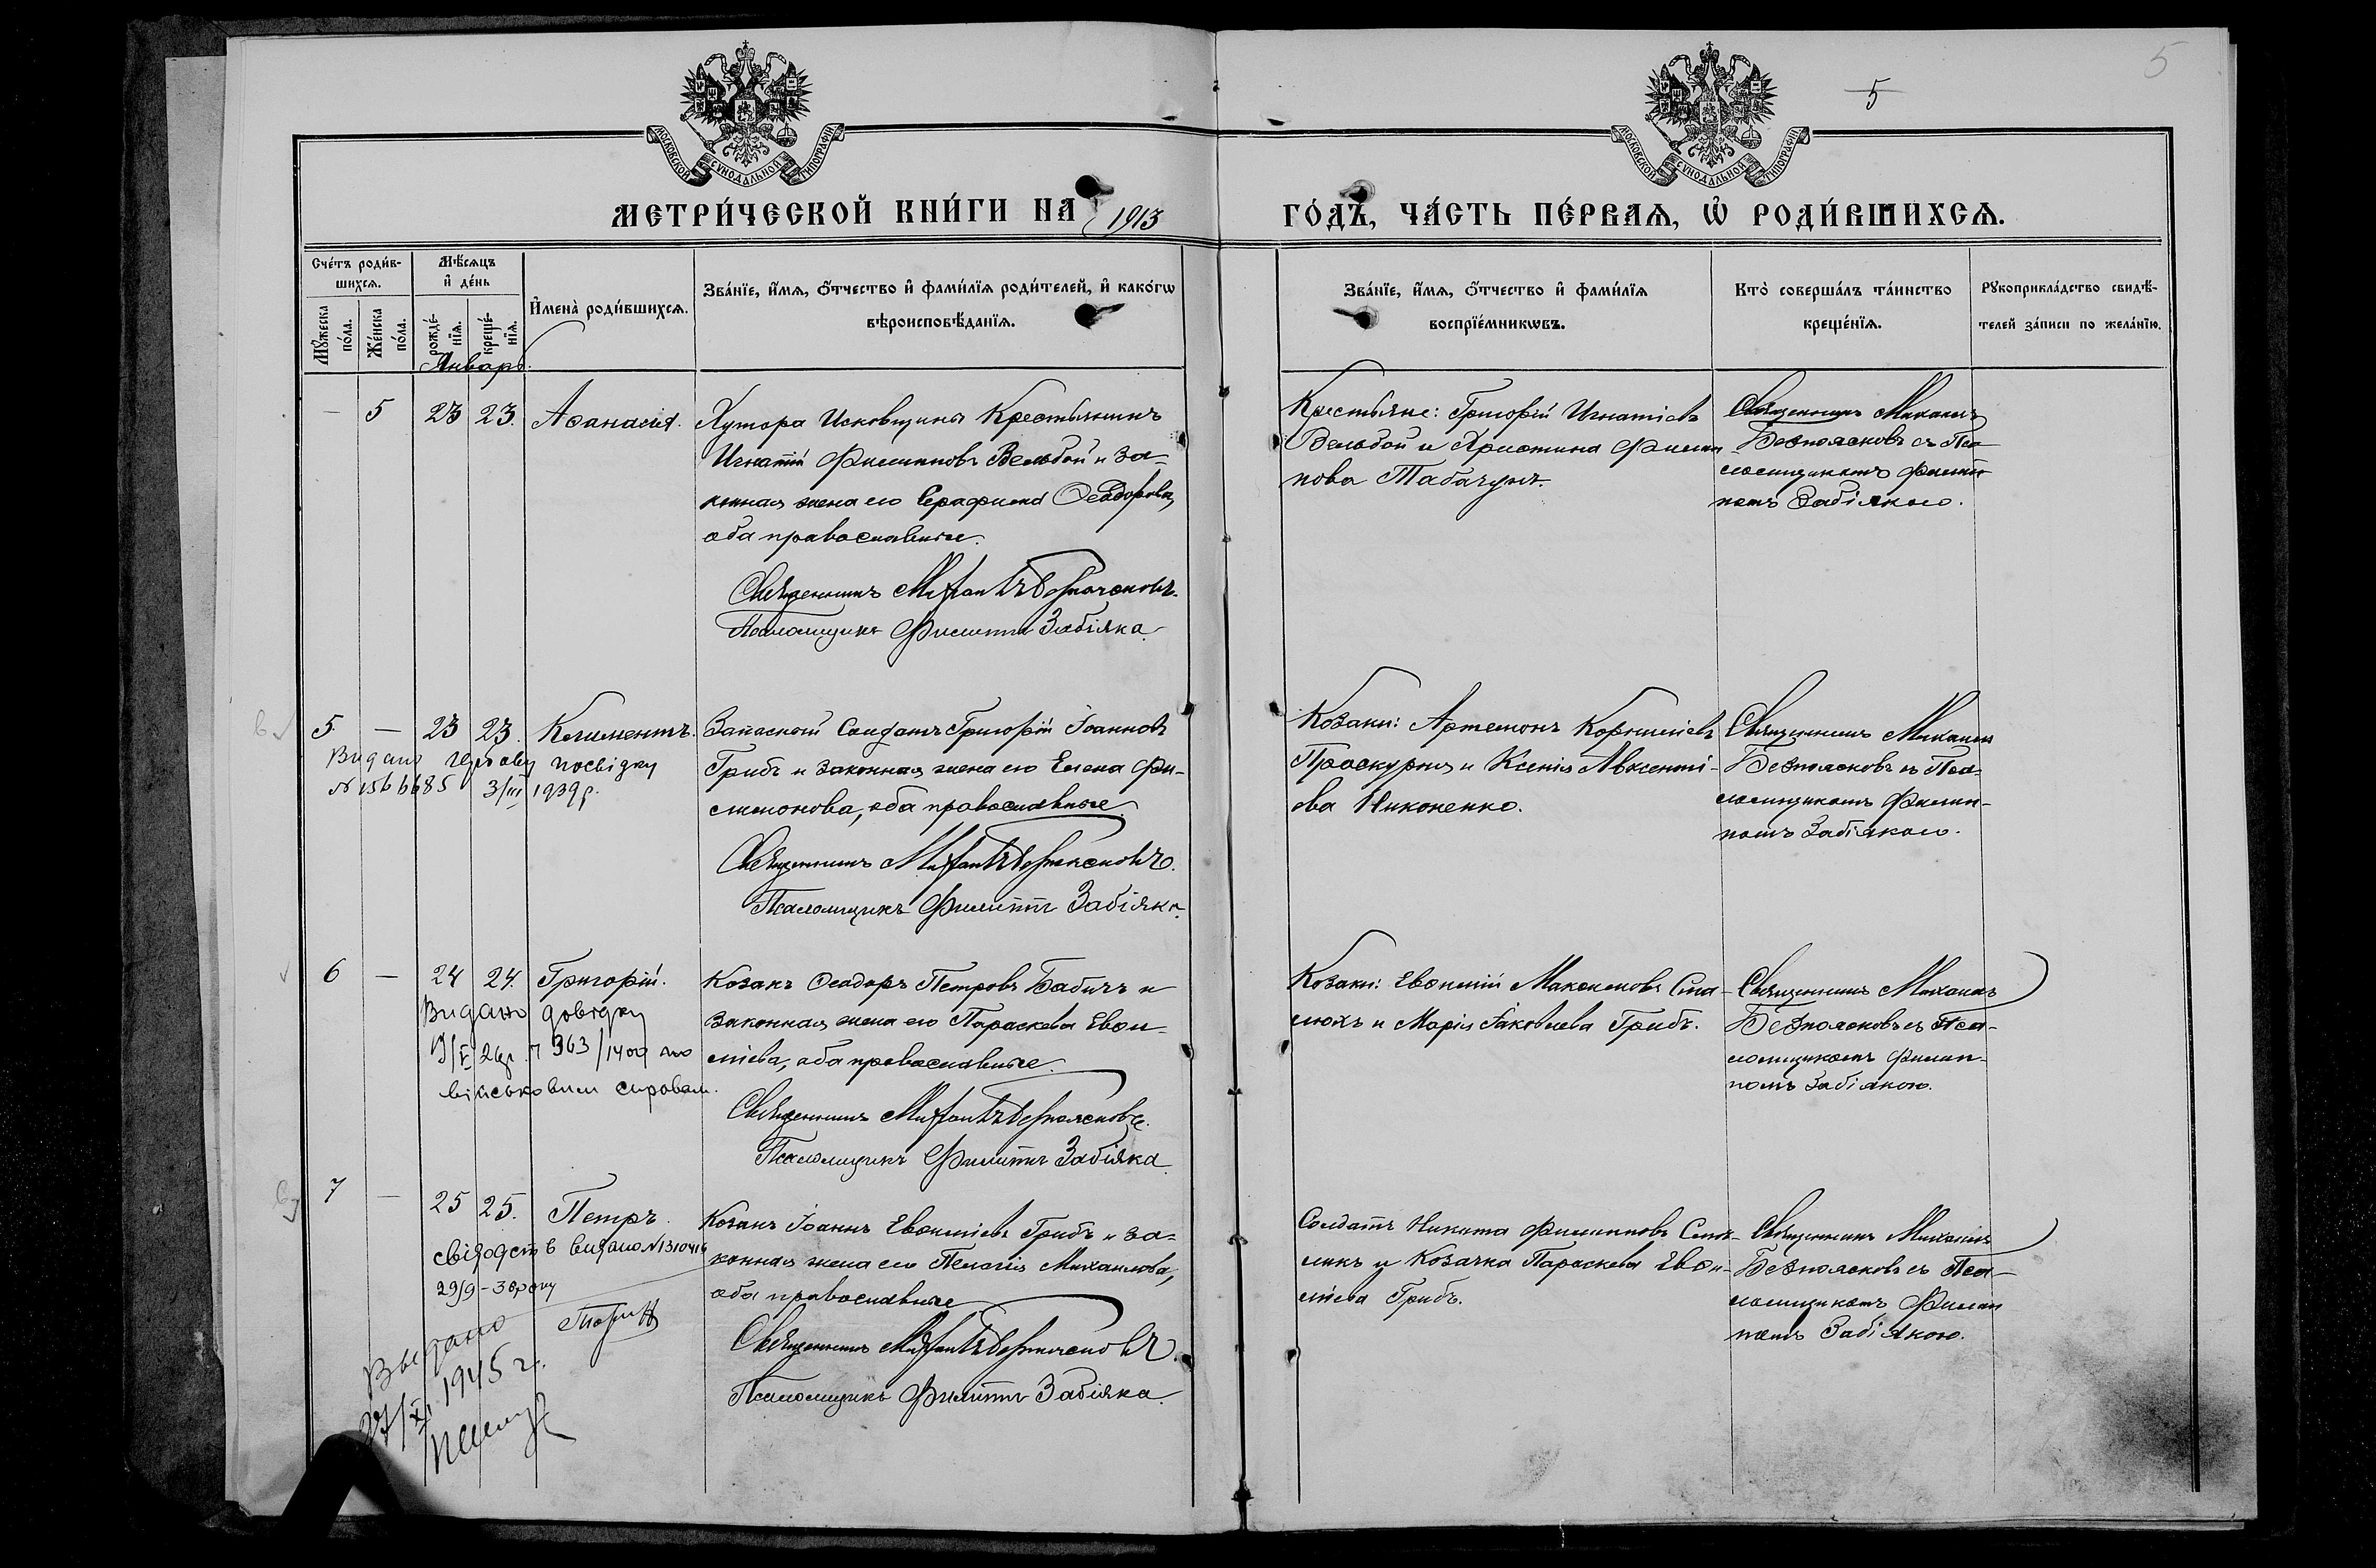 5
5
МОСКОВСКОЙ СѴНОДАЛЬНОЙ ТИПОГРАФІИ
МОСКОВСКОЙ СѴНОДАЛЬНОЙ ТИПОГРАФІИ
МЕТРИ́ЧЕСКОЙ КНИ́ГИ НА 1913
ГО́ДЪ, ЧА́СТЬ ПЕ́РВАѦ, Ѡ҆ РОДИ́ВШИХСѦ.
Сче́тъ роди́в-
шихсѧ.
Мꙋ́жеска
по́ла.
Же́нска
по́ла.
Мѣ́сѧцъ
и҆ де́нь
рожде́-
нїѧ.
креще́-
нїѧ.
И҆мена̀ роди́вшихсѧ.
Зва́нїе, и҆́мѧ, ѻ҆́тчество и҆ фами́лїѧ роди́телей, и҆ како́гѡ
вѣроисповѣ́данїѧ.
Зва́нїе, и҆́мѧ, ѻ҆́тчество и҆ фами́лїѧ
воспрїе́мникѡвъ.
Кто̀ соверша́лъ та́инство
креще́нїѧ.
Рꙋкоприкла́дство свидѣ́-
телей за́писи по жела́нїю.
Январь.
— 5 23 23. Аѳанасія.
Хутора Исковщины Крестьянинъ
Игнатій Филипповъ Вельбой и за-
конная жена его Серафима Ѳеодорова,
оба православные.
Священникъ Михаилъ Безпоясковъ.
Псаломщикъ Филиппъ Забіяка.
Крестьяне: Григорій Игнатіевъ
Вельбой и Христина Филип-
пова Табачукъ.
Священникъ Михаилъ
Безпоясковъ съ Пса-
ломщикомъ Филип-
помъ Забіякою.
5. — 23 23. Климентъ.
Видано нову посвідку
№ 1566685 3/III 1939 р.
Запасной Солдатъ Григорій Іоанновъ
Грибъ и законная жена его Елена Фи-
лимонова, оба православные.
Священникъ Михаилъ Безпоясковъ.
Псаломщикъ Филиппъ Забіяка.
Козаки: Артемонъ Корниліевъ
Проскурня и Ксенія Авксенті-
ева Никоненко.
Священникъ Михаилъ
Безпоясковъ съ Пса-
ломщикомъ Филип-
помъ Забіякою.
6 — 24 24. Григорій.
Видано довідку
26р. 963/1400 по
військовим справам.
Козакъ Ѳеодоръ Петровъ Бабичъ и
законная жена его Параскева Евѳи-
міева, оба православные.
Священникъ Михаилъ Безпоясковъ.
Псаломщикъ Филиппъ Забіяка.
Козаки: Евѳимій Максимовъ Сма-
люхъ и Марія Іаковлева Грибъ.
Священникъ Михаилъ
Безпоясковъ съ Пса-
ломщикомъ Филип-
помъ Забіякою.
7 — 25 25. Петръ.
свідоцтв видано №1310416
29/9-38року
Выдано
1945 г.
Козакъ Іоаннъ Евѳиміевъ Грибъ и за-
конная жена его Пелагія Михаилова,
оба православные.
Священникъ Михаилъ Безпоясковъ.
Псаломщикъ Филиппъ Забіяка.
Солдатъ Никита Филипповъ
и Козачка Параскева Евѳи-
міева Грибъ.
Священникъ Михаилъ
Безпоясковъ съ Пса-
ломщикомъ Филип
помъ Забіякою.